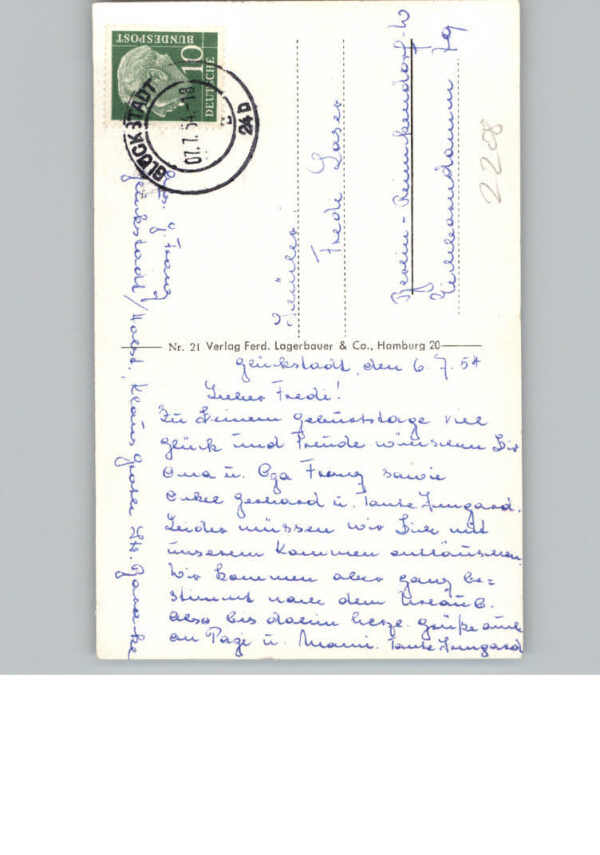 10
DEUTSCHE
BUNDESPOST
GLÜCKSTADT
07.7.54.-18
24b
Abs. g. Franz
Glückstadt/Holst. Klaus Groth Str. Baracke
Schüler
Fredi Laser
Berlin-Reinickendorf-W
79
2208
Nr. 21 Verlag Ferd. Lagerbauer & Co., Hamburg 20
Glückstadt, den 6.7.54
Lieber Fredi!
Zu Deinem Geburtstage viel
Glück und Freude wünschen Dir
Oma u. Opa Franz sowie
Onkel Gerhard u. Tante Irmgard.
Leider müssen wir Dich mit
unserem Kommen enttäuschen.
Wir kommen aber ganz be=
stimmt nach dem Urlaub.
Also bis dahin herzl. Grüße auch
an Papi u. Mami. Tante Irmgard